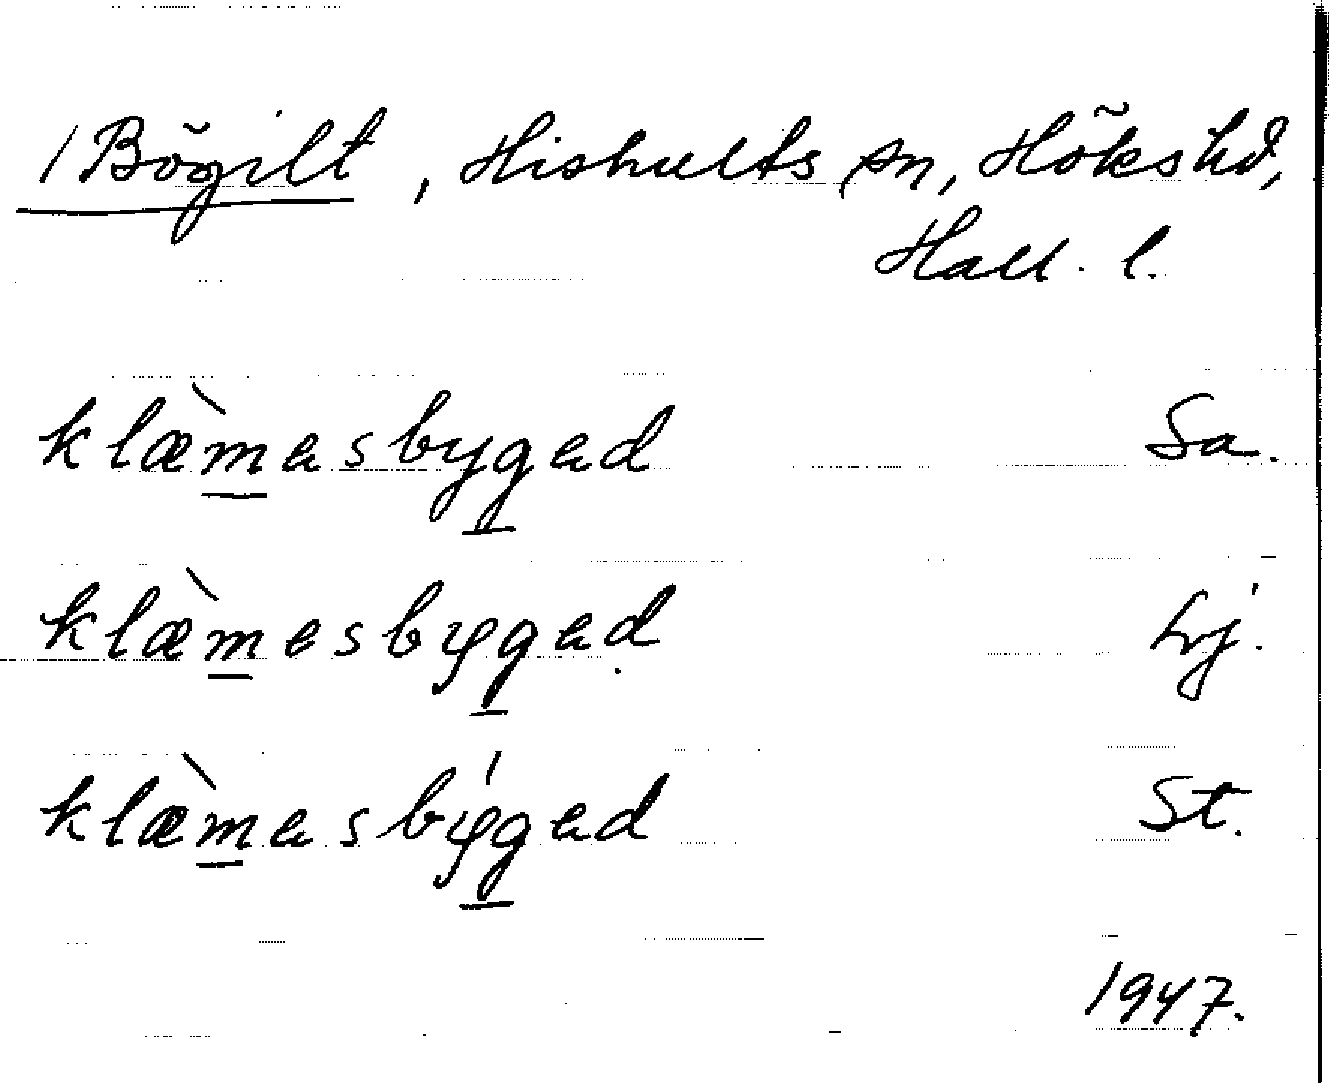 1 Bögilt, Hishults sn, Höks hd,
Hall. l.
klæ̀mesbyged Sa.
klæ̀mesbyged Lj.
klæ̀mesbýged St.
1947.